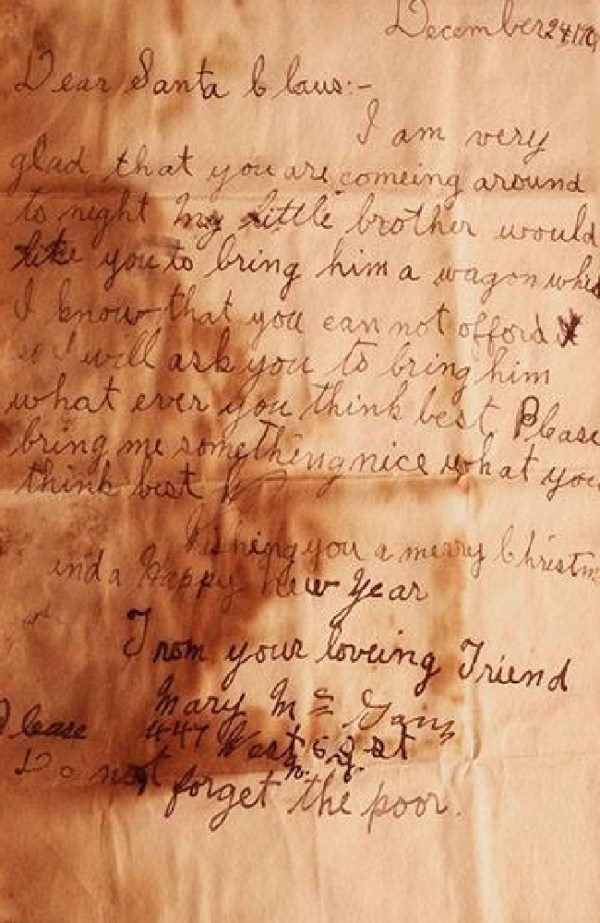 December 24 19
Dear Santa Claus:-
I am very
glad that you are comeing around
to night My little brother would
like you to bring him a wagon
I know that you can not afford
I will ask you to bring him
what ever you think best. Please
bring me something nice what you
think best
Wishing you a merry Christm
and a Happy New Year
From your loveing Friend
Mary Mc Gann
447 West St
Please
Do not forget the poor.